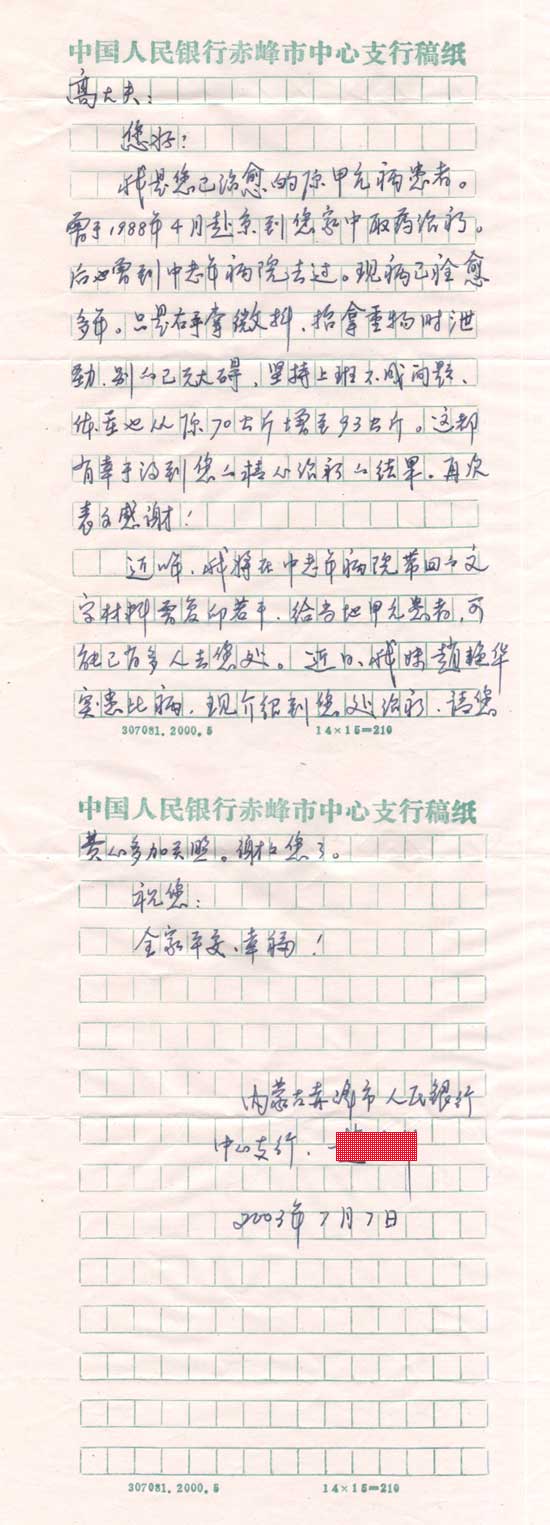 中国人民银行赤峰市中心支行稿纸
高大夫：
您好！
我是您已治愈的原甲亢病患者。
曾于1988年4月赴京到您家中取药治疗。
后也曾到中老年病院去过。现病已痊愈
多年。只是右手拿微抖、抬拿重物时泄
劲，别的已无大碍，坚持上班不成问题、
体重也从原70公斤增至93公斤。这都
有幸于得到您的精心治疗的结果。再次
表示感谢！
近年，我将在中老年病院带回的文
字材料曾复印若干，给当地甲亢患者，可
能已有多人去您处。近日，我妹赵艳华
实患此病，现介绍到您处治疗，请您
307081.2000.5 14×15=210
中国人民银行赤峰市中心支行稿纸
费心多加关照。谢谢您了。
祝您：
全家平安、幸福！
内蒙古赤峰市人民银行
中心支行、
2003年7月7日
307081.2000.5 14×15=210